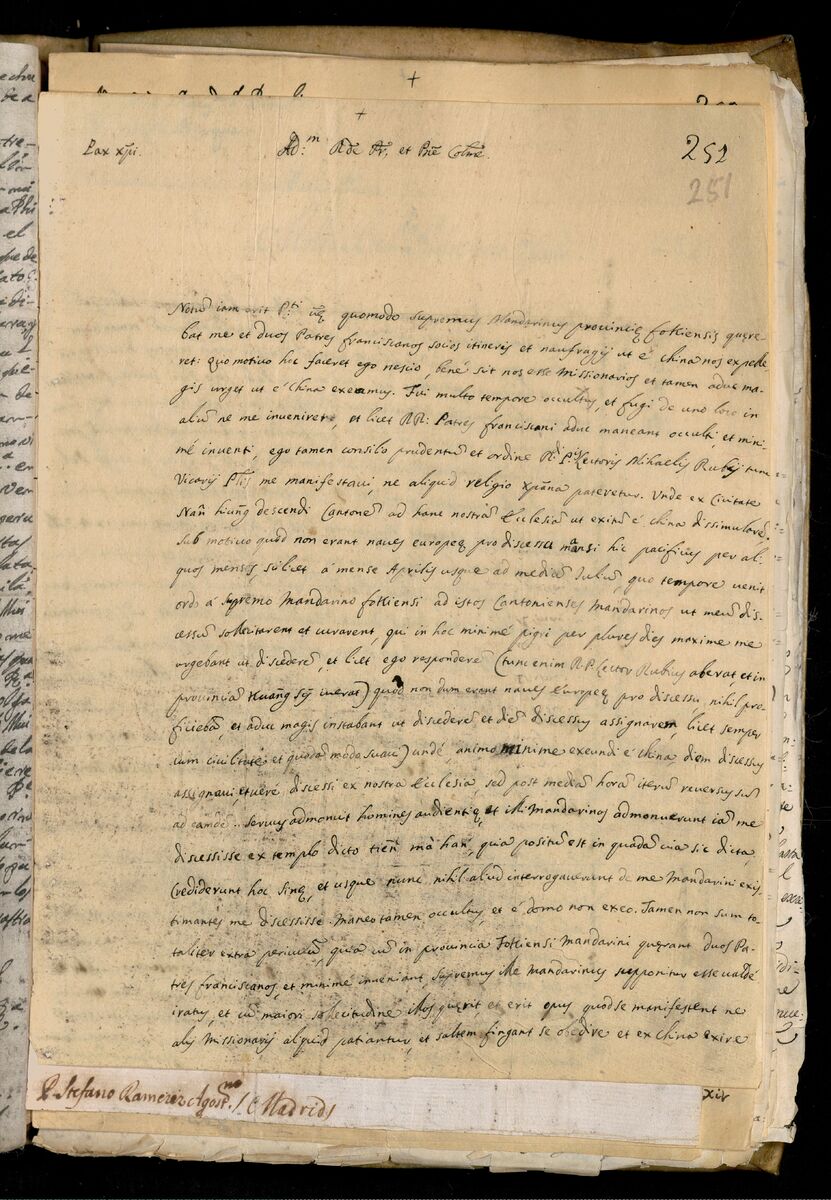 +
+
Pax xp̃i.
Ad:m Rde Pr. et Dñe Colme.
252
251
Notũ iam erit P.ti vr̃ę quomodo supremus Mandarinus provincię fokiensis quęre-
bat me et duos Patres franciscanos socios itineris et naufragij ut é China nos expelle
ret: quo motivo hoc faceret ego nescio, bené scit nos esse Missionarios et tamen aduc ma-
gis urget ut é China exeamus. Fui multo tempore occultus, et fugi de uno loco in
aliũ ne me invenirẽt, et licet RR: Patres franciscani aduc maneant occulti, et mini-
mé inventi, ego tamen consilio prudentũ et ordine R.di P. Lectoris Mihaelis Rubij tunc
Vicarij P.lis me manifestavi, ne aliquid religio xp̃ana pateretur. Unde ex Civitate
Nañ hiung descendi Cantonẽ ad hanc nostrã Ecclesiã ut exitũ é China dissimularẽ.
Sub motivo quod non erant naves europeę pro discessu mansi hic pacificus per ali-
quos menses, scilicet á mense Aprilis usque ad mediũ Juliũ, quo tempore venit
ordo á Supremo Mandarino fokiensi ad istos Cantonienses Mandarinos ut meũ dis-
cessũ sollicitarent et curarent, qui in hoc minimé pigri per plures dies maxime me
urgebant ut discederẽ, et licet ego responderẽ (tunc enim R.P. Lector Rubius aberat et in
provinciã Kuang sỹ iverat) quod non dum erant naves Europeę pro discessu, nihil pro-
ficiebã, et aduc magis instabant ut discederẽ et diẽ discessus assignarem, licet semper
cum civilitate et quodã modo suavi) undé, animo minime exeundi é China diem discessus
assignavi, et veré discessi ex nostra Ecclesia, sed post mediã horã iterũ reversus sũ
ad eamdẽ. Servus admonuit homines audientię, et illi Mandarinos admonuerunt iã me
discessisse ex templo dicto tien mâ han, quia positũ est in quadã via sic dicta,
Crediderunt hoc Sinę, et usque nunc nihil aliud interrogaverunt de me Mandarini exis-
timantes me discessisse. Maneo tamen occultus, et é domo non exeo. Tamen non sum to-
taliter extra periculũ, quia cũ in provincia Fokiensi Mandarini quęrant duos Pa-
tres franciscanos, et minimé inveniant, supremus ille Mandarinus supponitur esse valdé
iratus, et cũ maiori sollicitudine illos quęrit, et erit opus quod se manifestent ne
alij Missionarij aliquid patiantur, et saltem fingant se obedire et ex China exire
P. Stefano Ramerez Agost.no S. C Madrids
xir